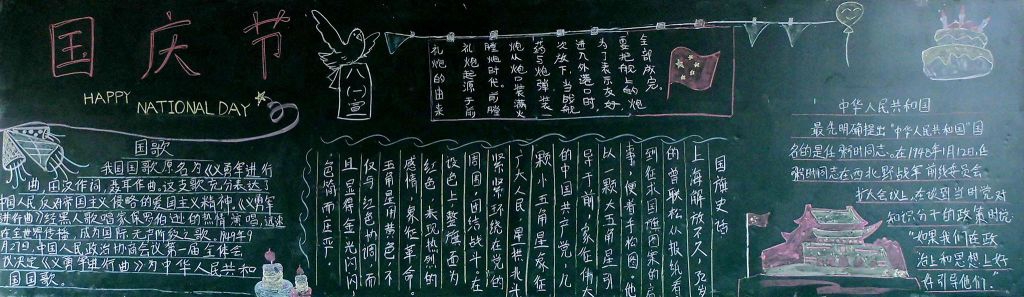 国庆节
HAPPY
NATIONAL DAY
国歌
我国国歌原名《义勇军进行
曲》田汉作词,聂耳作曲。这支歌充分表达了
中国人民反对帝国主义侵略的爱国主义精神。《义勇军
进行曲》经黑人歌唱家保罗伯逊的热情演唱,迅速
在全世界传播,成为国际无产阶级之歌。1949年9
月27日,中国人民政治协商会议第一届全体会
议决定《义勇军进行曲》为中华人民共和
国国歌。
八一宣
全部成完,
要把舰上的炮
为了表示友好,
进入外港口时,
次放下,当战舰
药与炮弹装一
炮从炮口装满火
膛炮时代。前膛
礼炮起源于前
礼炮的由来
国旗史话
上海解放不久,37岁
的曾联松从报纸看
到征求国旗图案的启
事,便着手构图,他
以一颗大五角星引
导于前,象征伟大
的中国共产党,几
颗小五角星象征
广大人民,星拱北斗
紧紧环绕在党的
周围,团结战斗。在
设色上,整旗面为
红色,表现热烈的
感情,象征革命。
五角星用黄色,不
仅与红色协调,而
且显得金光闪闪,
色简而庄严。
中华人民共和国
最先明确提出"中华人民共和国"国
名的是任弼时同志。在1948年1月12日,任
弼时同志在西北野战军前线委员会
扩大会议上,在谈到当时党对
知识分子的政策时说:
"如果我们在政
治上和思想上好
好引导他们."